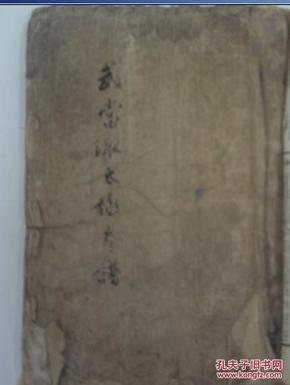 武當派太極拳譜
孔夫子旧书网
kongfz.com